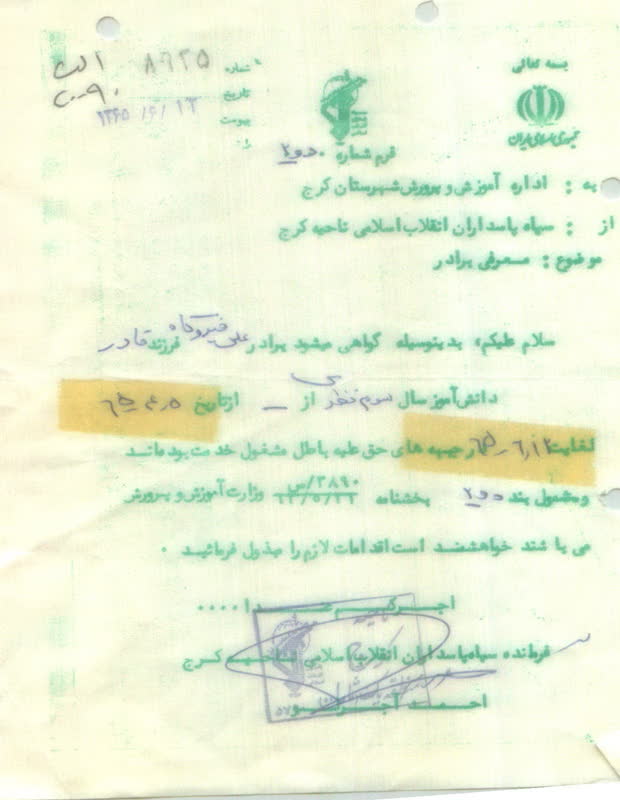 بسمه تعالی
جمهوری اسلامی ایران
شماره ۸۶۲۵
تاریخ
پیوست ۱۳۶۵/۶/۱۳
فرم شماره ۲۰۵۰
به : اداره آموزش و پرورش شهرستان کرج
از : سپاه پاسداران انقلاب اسلامی ناحیه کرج
موضوع : معرفی برادر
سلام علیکم، بدینوسیله گواهی میشود برادر علی فیروزگاه فرزند قادر
دانش آموز سال سوم از از تاریخ ۶۵٫۴٫۵
لغایت ۶۵٫۶٫۱۲ در جبهه های حق علیه باطل مشغول خدمت بوده‌اند
و مشمول بند بخشنامه ۳۸۹۰/س وزارت آموزش و پرورش
می باشند خواهشمند است اقدامات لازم را مبذول فرمائید .
اجرکم عندا....
فرمانده سپاه پاسداران انقلاب اسلامی ناحیه کرج
احمد آجرلو